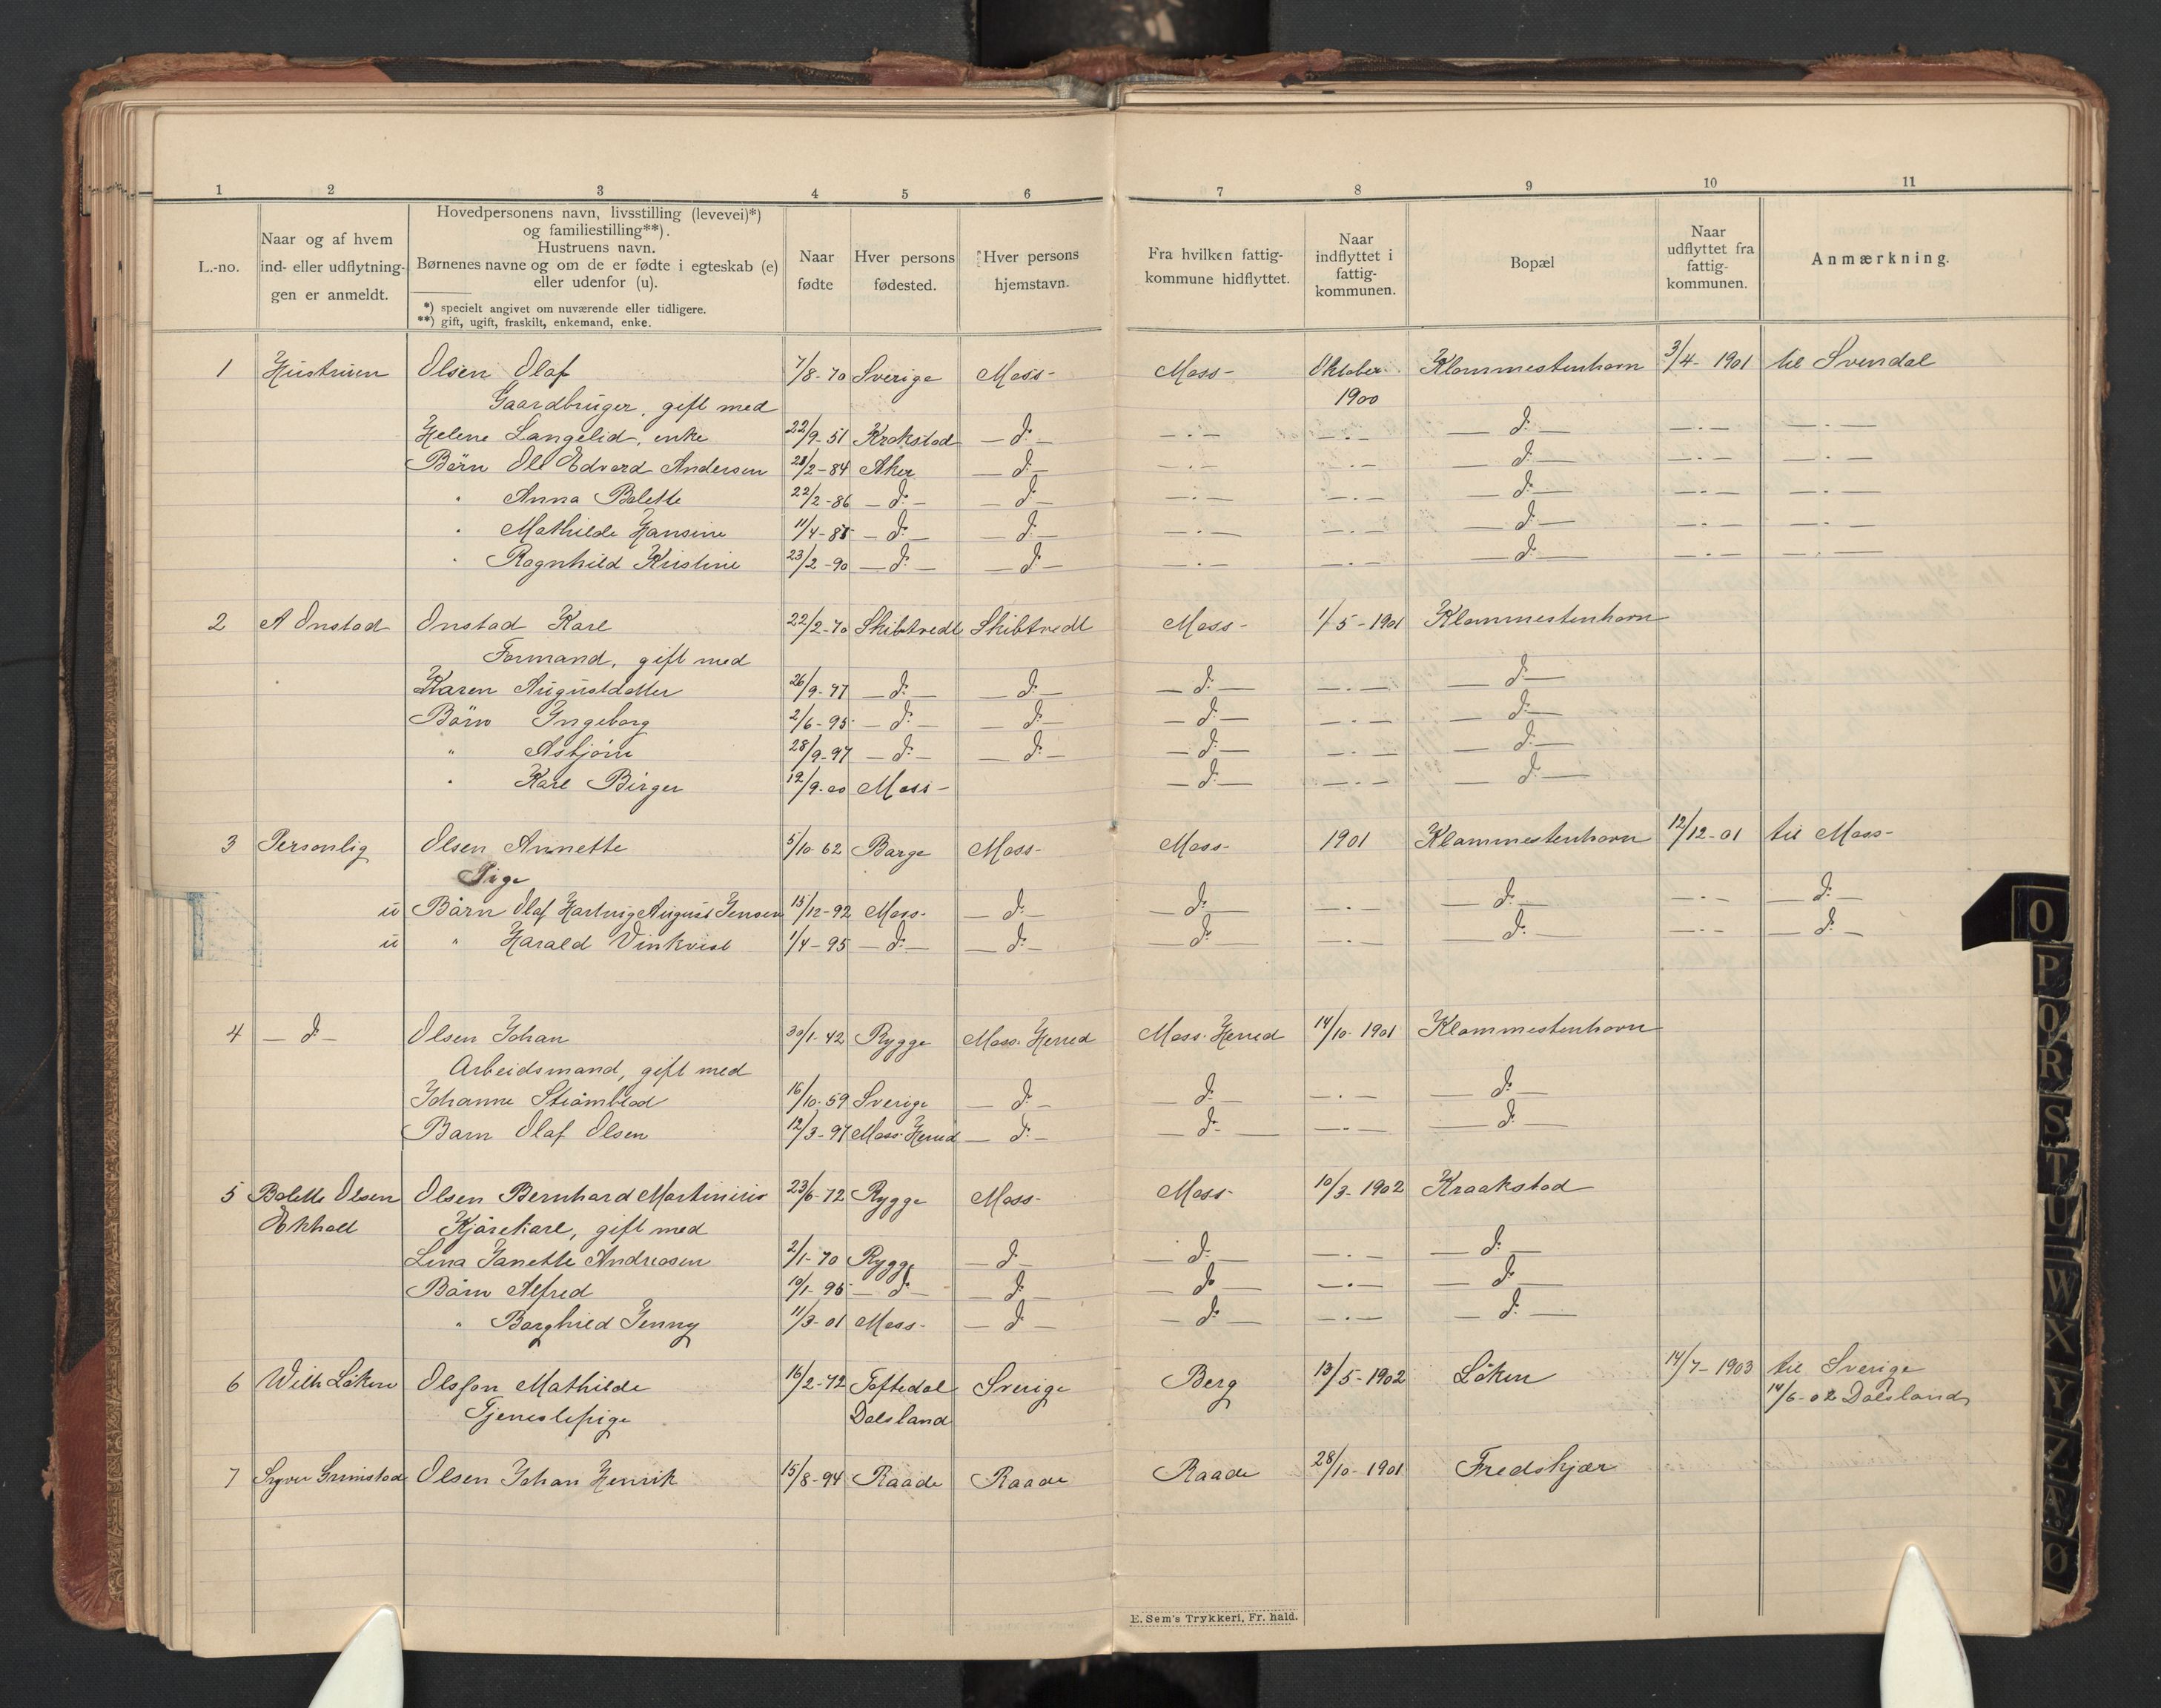 1 2 3 4 5 6 7 8 9 10 11
L.-no.
Naar og af hvem
ind- eller udflytnin-
gen er anmeldt.
Hovedpersonens navn, livsstilling (levevei)*)
og familiestilling**).
Hustruens navn.
Børnenes navne og om de er fødte i egteskab (e)
eller udenfor (u).
*) specielt angivet om nuværende eller tidligere.
**) gift, ugift, fraskilt, enkemand, enke.
Naar
fødte
Hver persons
fødested.
Hver persons
hjemstavn.
Fra hvilken fattig-
kommune hidflyttet.
Naar
indflyttet i
fattig-
kommunen.
Bopæl
Naar
udflyttet fra
fattig-
kommunen.
Anmærkning.
1 Hustruen Olsen Olaf 7/8-70 Sverige Moss- Moss- Oktober Klommestenhavn 3/4-1901 til Svendal
Gaardbruger, gift med 1900
Helene Langelid, enke 22/9-51 Krokstad — d: — — . — — . — — d: — — . — — . —
Børn Ole Edvard Andersen 28/2-84 Aker — d: — — . — — . — — d: — — . — — . —
" Anna Bolette 22/2-86 — d: — — d: — — . — — . — — d: — — . — — . —
" Mathilde Hansine 11/4-88 — d: — — d: — — . — — . — — d: — — . — — . —
" Ragnhild Kristine 23/2-90 — d: — — d: — — . — — . — — d: — — . — — . —
2 A Onstad Onstad Karl 22/2-70 Skibtvedt Skibtvedt Moss- 1/5-1901 Klommestenhavn
Formand, gift med
Karen Augustdatter 26/9-77 — d: — — d: — — d: — — . — — d: —
Børn Ingeborg 2/6-95 — d: — — d: — — d: — — . — — d: —
" Asbjørn 28/9-97 — d: — — d: — — d: — — . — — d: —
" Karl Birger 12/9-00 Moss- — d: — — . — — d: —
3 Personlig Olsen Annette 5/10-62 Barge Moss- Moss- 1901 Klommestenhavn 12/12-01 til Moss-
Pige
u Børn Olaf Hartvig August Jensen 15/12-92 Moss- — d: — — d: — — . — — d: — — . — — d: —
u " Harald Vinkvist 1/4-95 — d: — — d: — — d: — — . — — d: — — . — — d: —
4 — d: — Olsen Johan 30/1-42 Rygge Moss. Herred Moss. Herred 14/10-1901 Klommestenhavn
Arbeidsmand, gift med
Johanne Strømblad 16/10-59 Sverige — d: — — d: — — . — — d: —
Barn Olaf Olsen 12/3-97 Moss. Herred — d: — — d: — — . — — d: —
5 Bolette Olsen Olsen Bernhard Martinius 23/6-72 Rygge Moss- Moss- 10/3-1902 Kraakstad
Ekholt Kjørekarl, gift med
Lina Janette Andreasen 2/1-70 Rygge — d: — — d: — — . — — d: —
Børn Alfred 10/1-95 — d: — — d: — — d: — — . — — d: —
" Borghild Jenny 11/3-01 Moss- — d: — — d: — — . — — d: —
6 Wilh Løken Olsson Mathilde 16/2-72 Töftedal Sverige Berg 13/5-1902 Løken 14/7-1903 til Sverige
Tjenestepige Dalsland 14/6-02 Dalsland
7 Syver Grimstad Olsen Johan Henrik 15/8-94 Raade Raade Raade 28/10-1901 Fredskjær
E. Sem's Trykkeri, Fr. hald.
O
P
Q
R
S
T
U
W
X
Y
Z
Æ
Ø